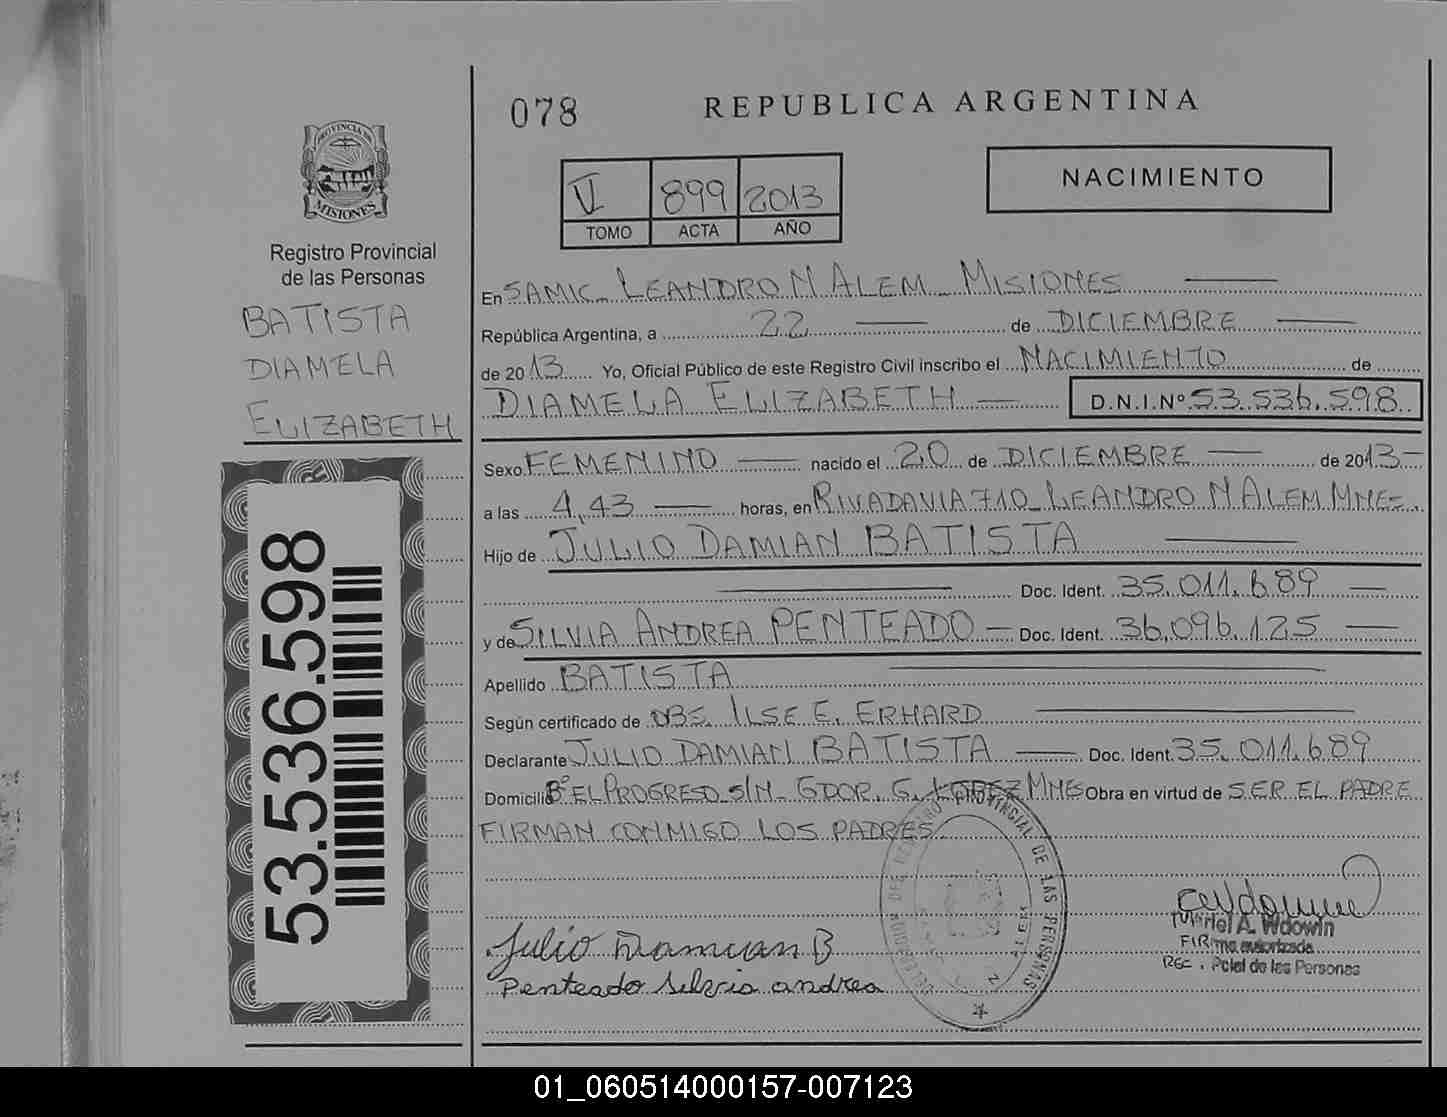 078
REPUBLICA ARGENTINA
PROVINCIA DE
MISIONES
Registro Provincial
de las Personas
BATISTA
DIAMELA
ELIZABETH
53.536.598
VI 899 2013
TOMO ACTA AÑO
NACIMIENTO
En SAMIC LEANDRO N ALEM - MISIONES
República Argentina, a 22 de DICIEMBRE
de 2013 Yo, Oficial Público de este Registro Civil inscribo el NACIMIENTO de
DIAMELA ELIZABETH D.N.I.Nº 53.536.598
Sexo FEMENINO nacido el 20 de DICIEMBRE de 2013
a las 4,43 horas, en RIVADAVIA 710 - LEANDRO N ALEM. MNES.
Hijo de JULIO DAMIAN BATISTA
Doc. Ident. 35.011.689
y de SILVIA ANDREA PENTEADO Doc. Ident. 36.096.125
Apellido BATISTA
Según certificado de OBS. ILSE E. ERHARD
Declarante JULIO DAMIAN BATISTA Doc. Ident. 35.011.689
Domicilio Bº EL PROGRESO S/N - GDOR. G. LOPEZ MNES Obra en virtud de SER EL PADRE
FIRMAN CONMIGO LOS PADRES
PROVINCIAL DE LAS PERSONAS
Julio Damian B
Penteado Silvia andrea
Muriel A. Wdowin
Firma autorizada
Reg. Pcial de las Personas
01_060514000157-007123